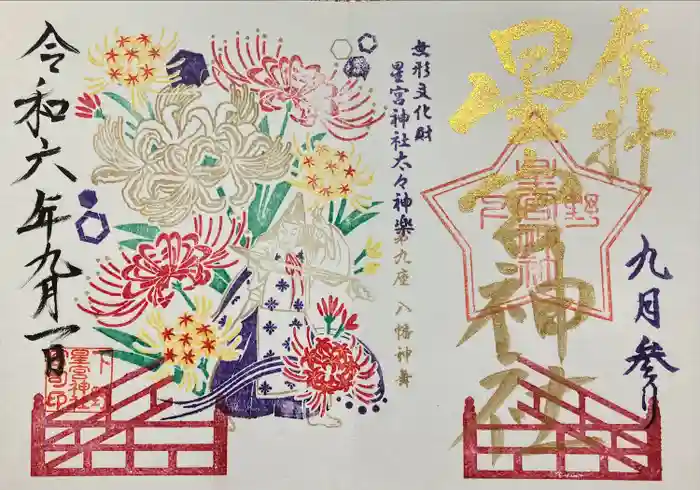 奉拝
星宮神社
九月参り
下野
星宮神社
無形文化財
星宮神社太々神楽第九座 八幡神舞
令和六年九月一日
下野
星宮神社
宮司印